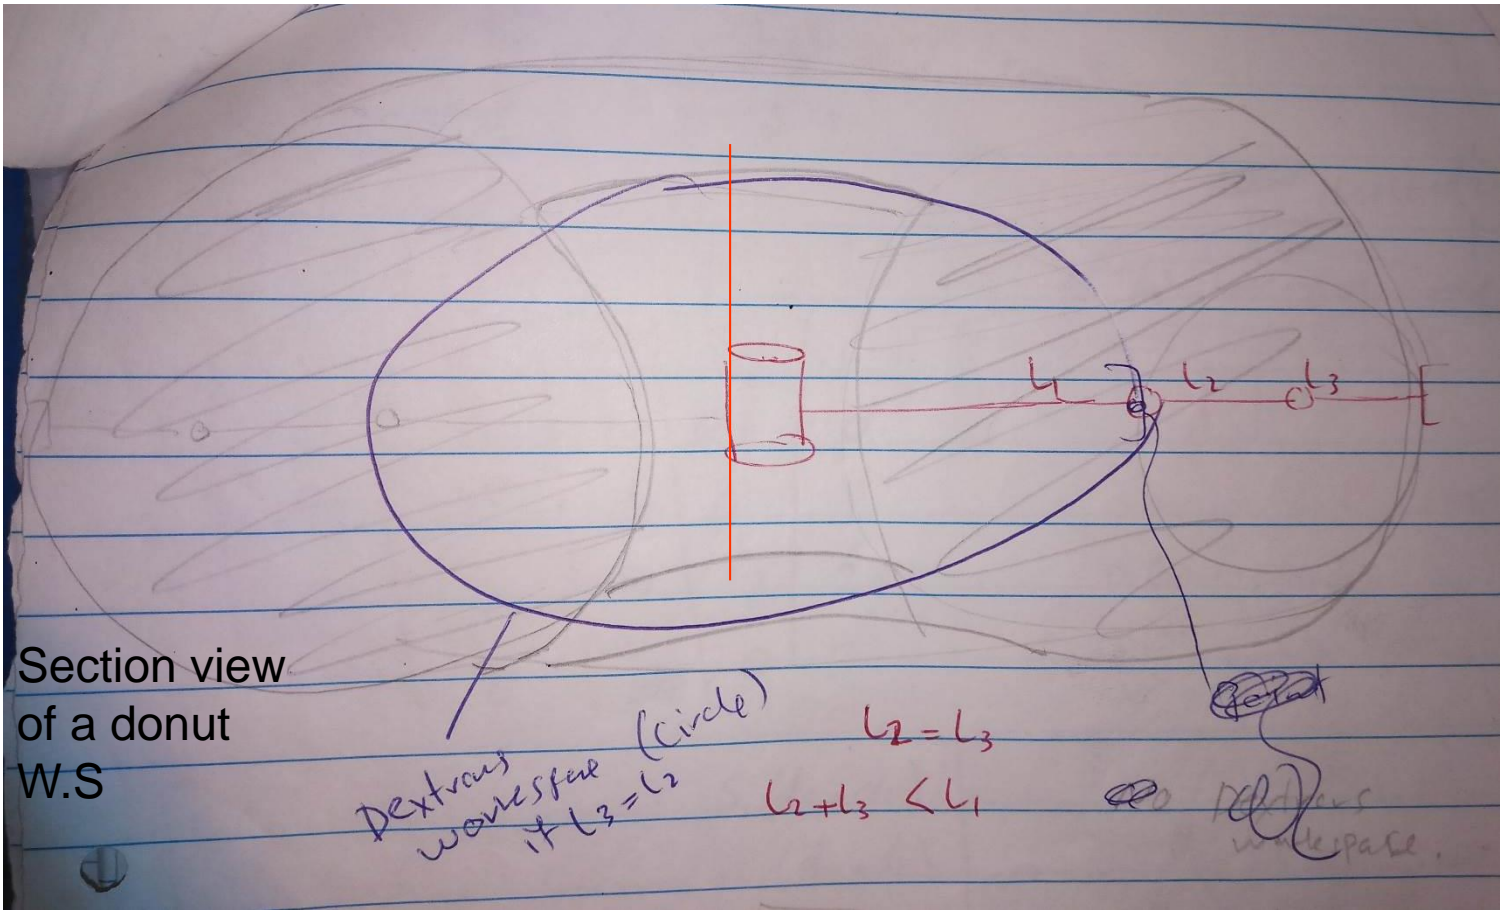 L1
L2
L3
Section view
of a donut
W.S
Dextrous
workespace (circle)
if L3 = L2
L2 = L3
L2 + L3 < L1
Dextrous
workespace.